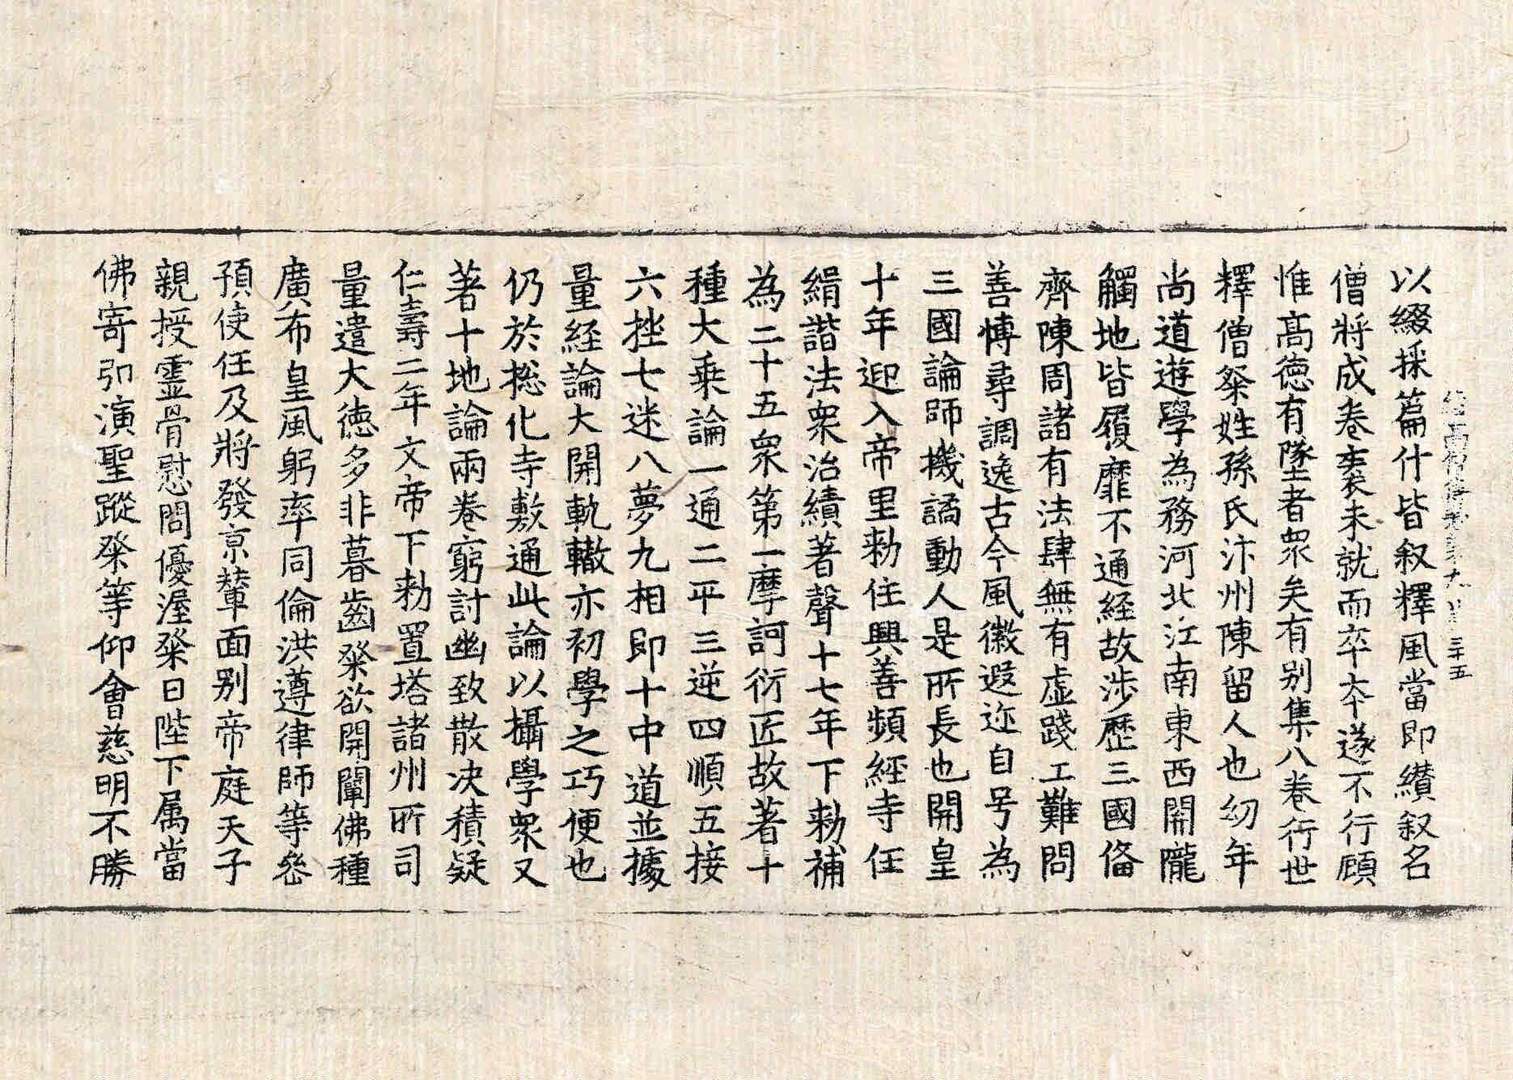 以綴採篇什皆叙釋風當即纉叙名
僧將成卷袠未就而卒夲遂不行顧
惟髙德有墜者衆矣有别集八卷行世
釋僧粲姓孫氏汴州陳留人也幼年
尚道遊學為務河北江南東西關隴
觸地皆履靡不通經故涉歷三國俻
齊陳周諸有法肆無有虚踐工難問
善慱尋調逸古今風徽遐迩自号為
三國論師機譎動人是所長也開皇
十年迎入帝里勑住興善頻經寺任
緝諧法衆治績著聲十七年下勑補
為二十五衆第一摩訶衍匠故著十
種大乗論一通二平三逆四順五接
六挫七迷八夢九相即十中道並據
量經論大開軌轍亦初學之巧便也
仍於捴化寺敷通此論以攝學衆又
著十地論兩卷窮討幽致散决積疑
仁壽二年文帝下勑置塔諸州所司
量遣大德多非暮齒粲欲開闡佛種
廣布皇風躬率同倫洪遵律師等叅
預使任及將發京輦面别帝庭天子
親授霊骨慰問優渥粲曰陛下属當
佛寄引演聖蹤粲等仰會慈明不勝